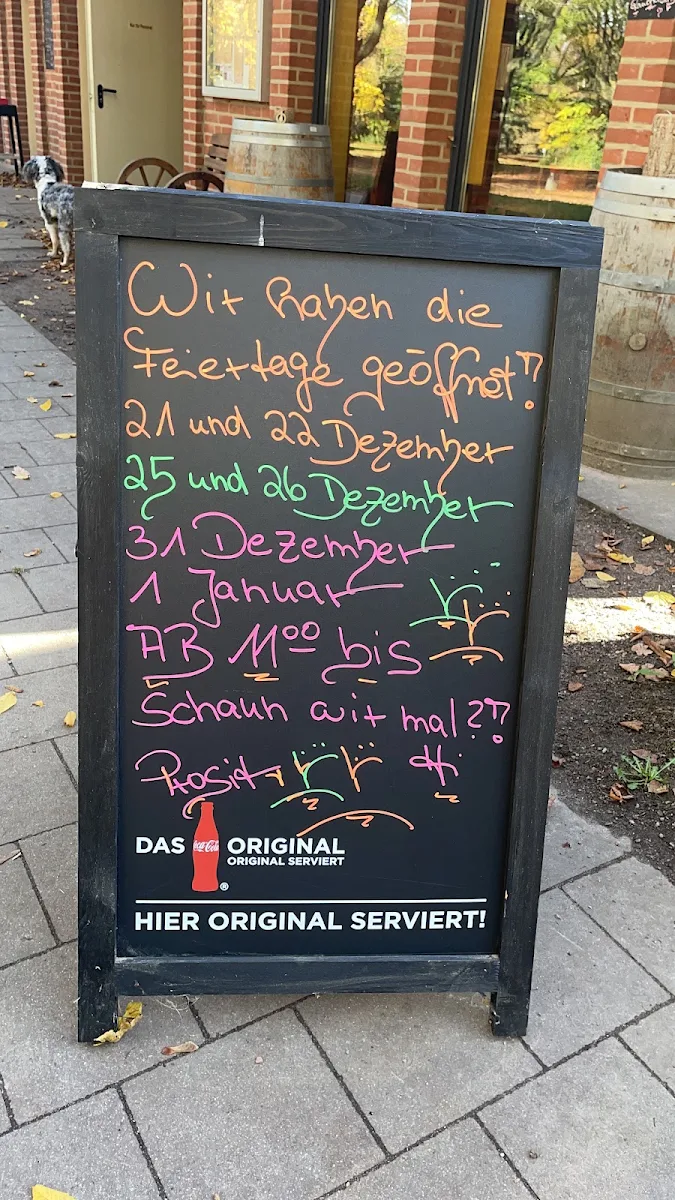 Wir haben die
Feiertage geöffnet!!
21 und 22 Dezember
25 und 26 Dezember
31 Dezember
1 Januar
AB 11⁰⁰ bis
Schauh wir mal??!
Prosit
DAS Coca-Cola ® ORIGINAL
ORIGINAL SERVIERT
HIER ORIGINAL SERVIERT!